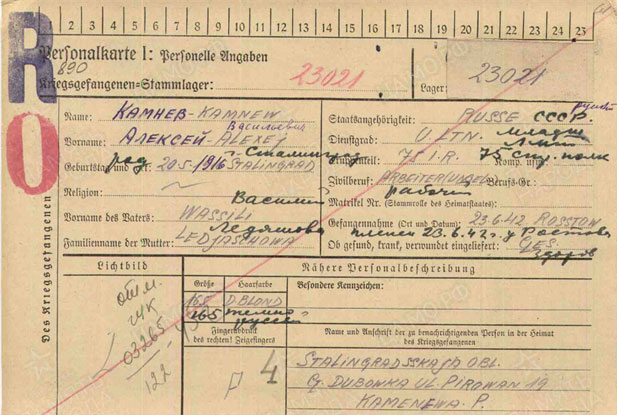 1 2 3 4 5 6 7 8 9 10 11 12 13 14 15 16 17 18 19 20 21 22 23 24 25
R O
Personalkarte I: Personelle Angaben
890
Kriegsgefangenen-Stammlager: 23021 Lager: 23021
Des Kriegsgefangenen
Name: КАМНЕВ-KAMNEW
Васильевич
Vorname: АЛЕКСЕЙ-ALEXEJ
Geburtstag und Ort: 20.5.1916 STALINGRAD
род Сталинград
Religion: ~
Василий
Vorname des Vaters: WASSILI
Ледяшова
Familienname der Mutter: LEDJASCHOWA
Staatsangehörigkeit: RUSSE СССР. русский
Dienstgrad: U. LTN. младш. лейт
Truppenteil: 75 I.R. Komp. usw.: 75 стр. полк
Zivilberuf: ARBEITER Berufs-Gr.:
рабочий
Matrikel Nr. (Stammrolle des Heimatstaates):
Gefangennahme (Ort und Datum): 23.6.42 ROSSTOW
пленен 23.6.42 г у Ростова
Ob gesund, krank, verwundet eingeliefert: GES.
здоров
Lichtbild
отм.
03265
122
Nähere Personalbeschreibung
Größe Haarfarbe
165 D.BLOND
165 темно
русый
Fingerabdruck
des rechten! Zeigefingers
4
Besondere Kennzeichen:
Name und Anschrift der zu benachrichtigenden Person in der Heimat
des Kriegsgefangenen
STALINGRADSSKAJA OBL.
G. DUBOWKA UL. PIROWAN 19
KAMENEWA. P